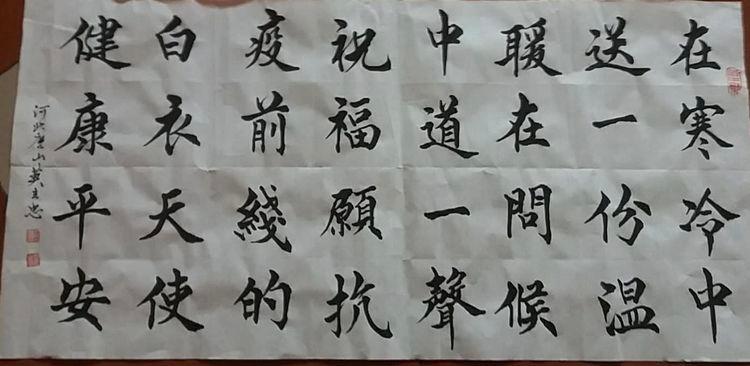 在寒冷中
送一份温
暖在問候
中道一聲
祝福願抗
疫前綫的
白衣天使
健康平安
河北唐山英立忠